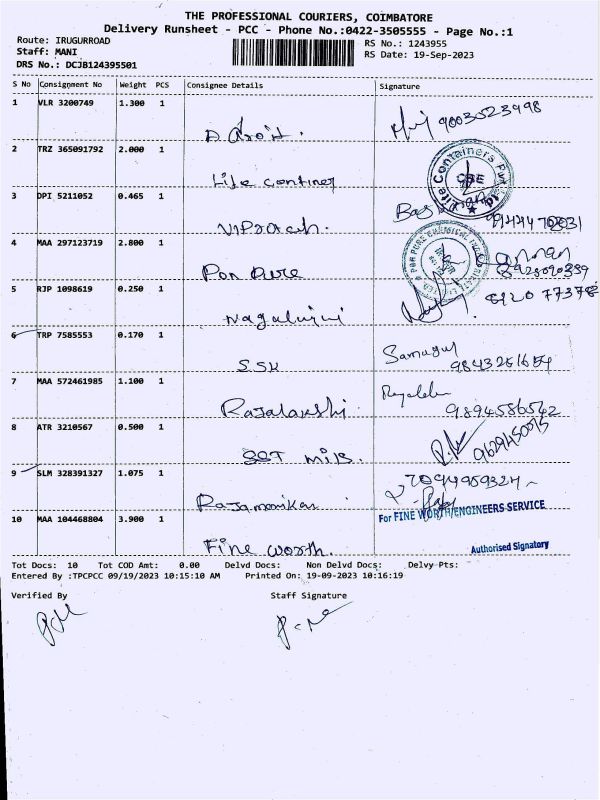 THE PROFESSIONAL COURIERS, COIMBATORE
Delivery Runsheet - PCC - Phone No.:0422-3505555 - Page No.:1
Route: IRUGURROAD
RS No.: 1243955
Staff: MANI
RS Date: 19-Sep-2023
DRS No.: DCJB124395501
S No Consignment No Weight PCS Consignee Details Signature
1 VLR 3200749 1.300 1
9003523998
2 TRZ 365091792 2.000 1
Life Continer
Lite Containers Pvt Ltd
CBE
3 DPI 5211052 0.465 1
4 MAA 297123719 2.800 1
Pon Pure
PON PURE CHEMICAL
5 RJP 1098619 0.250 1
6 TRP 7585553 0.170 1
SSK
7 MAA 572461985 1.100 1
9894586542
8 ATR 3210567 0.500 1
SST Mills.
9629450075
9 SLM 328391327 1.075 1
Rajamanikar
For FINE WORTH ENGINEERS SERVICE
10 MAA 104468804 3.900 1
Fine worth.
Authorised Signatory
Tot Docs: 10 Tot COD Amt: 0.00 Delvd Docs: Non Delvd Docs: Delvy Pts:
Entered By :TPCPCC 09/19/2023 10:15:10 AM Printed On: 19-09-2023 10:16:19
Verified By Staff Signature